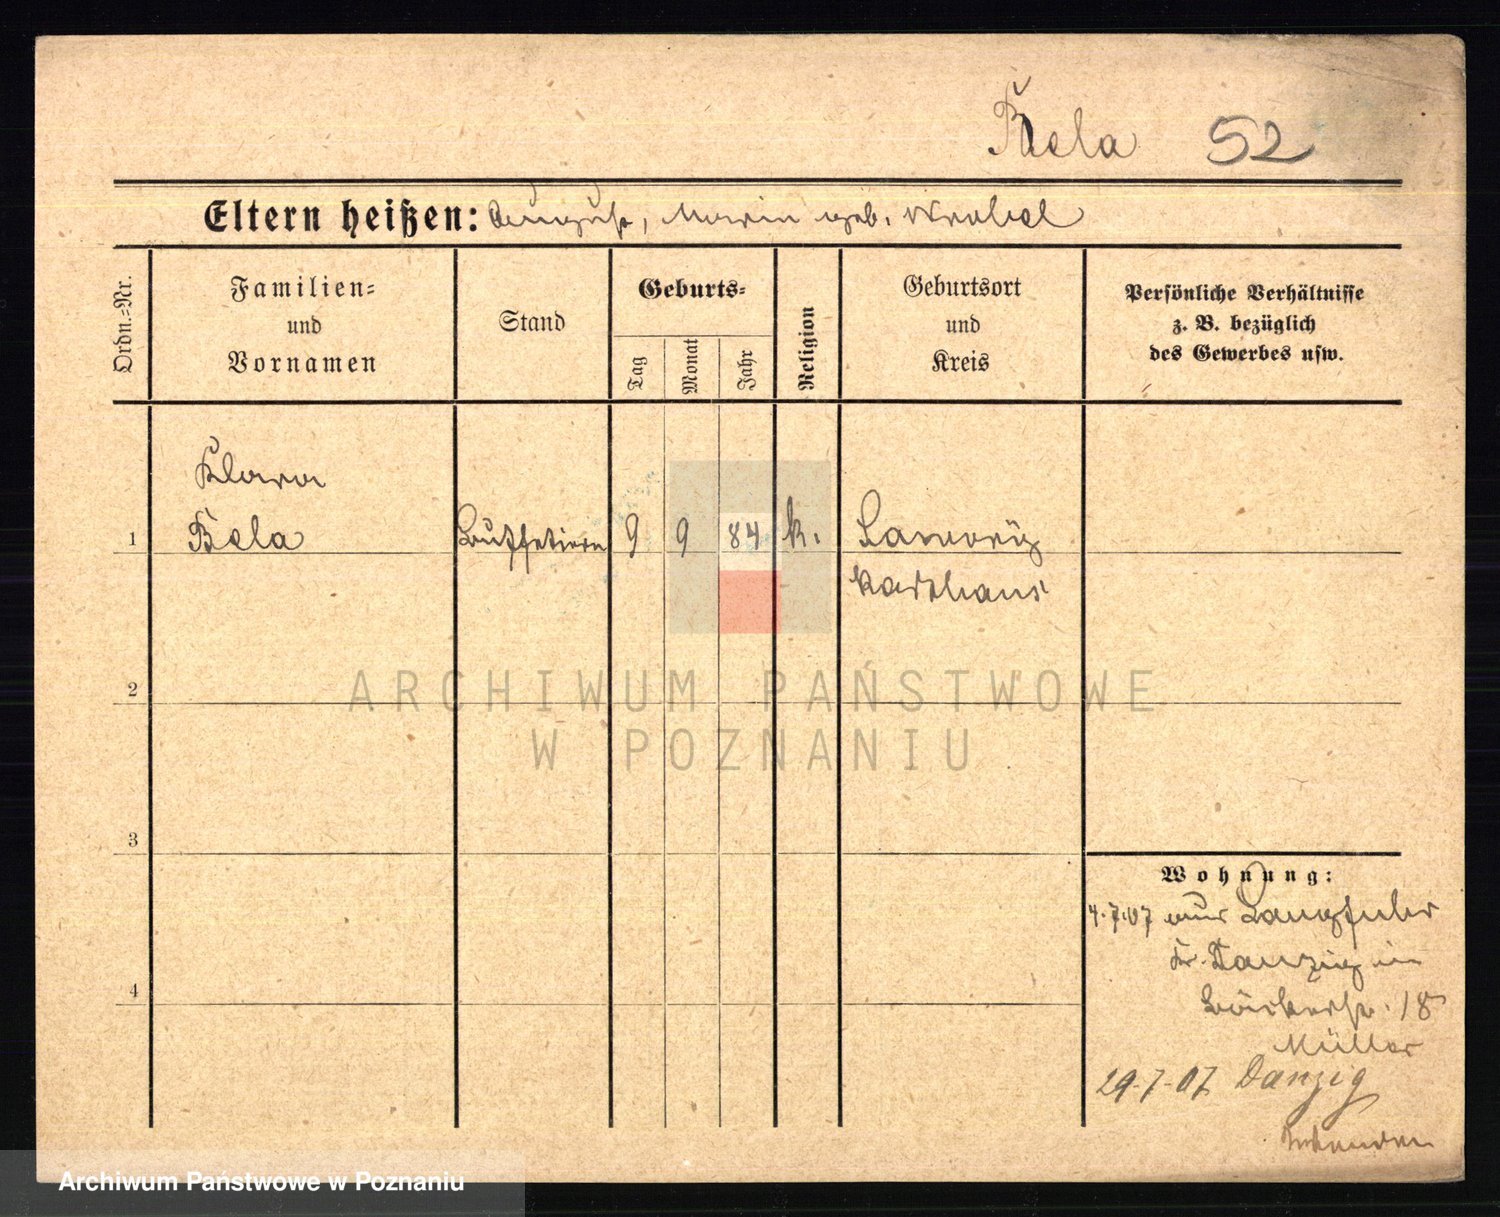 Bela 52
Eltern heißen: August, Maria geb. Wrobel
Ordn.-Nr.
Familien-
und
Vornamen
Stand
Geburts-
Tag
Monat
Jahr
Religion
Geburtsort
und
Kreis
Persönliche Verhältnisse
z. B. bezüglich
des Gewerbes usw.
Klara
1 Bela Buffetiere 9 9 84 k.
Karthaus
2
3
4
Wohnung:
4.7.07 aus Langfuhr
Kr. Danzig in
Bäckerstr. 18
Müller
29.7.07 Danzig
ARCHIWUM PAŃSTWOWE
W POZNANIU
Archiwum Państwowe w Poznaniu